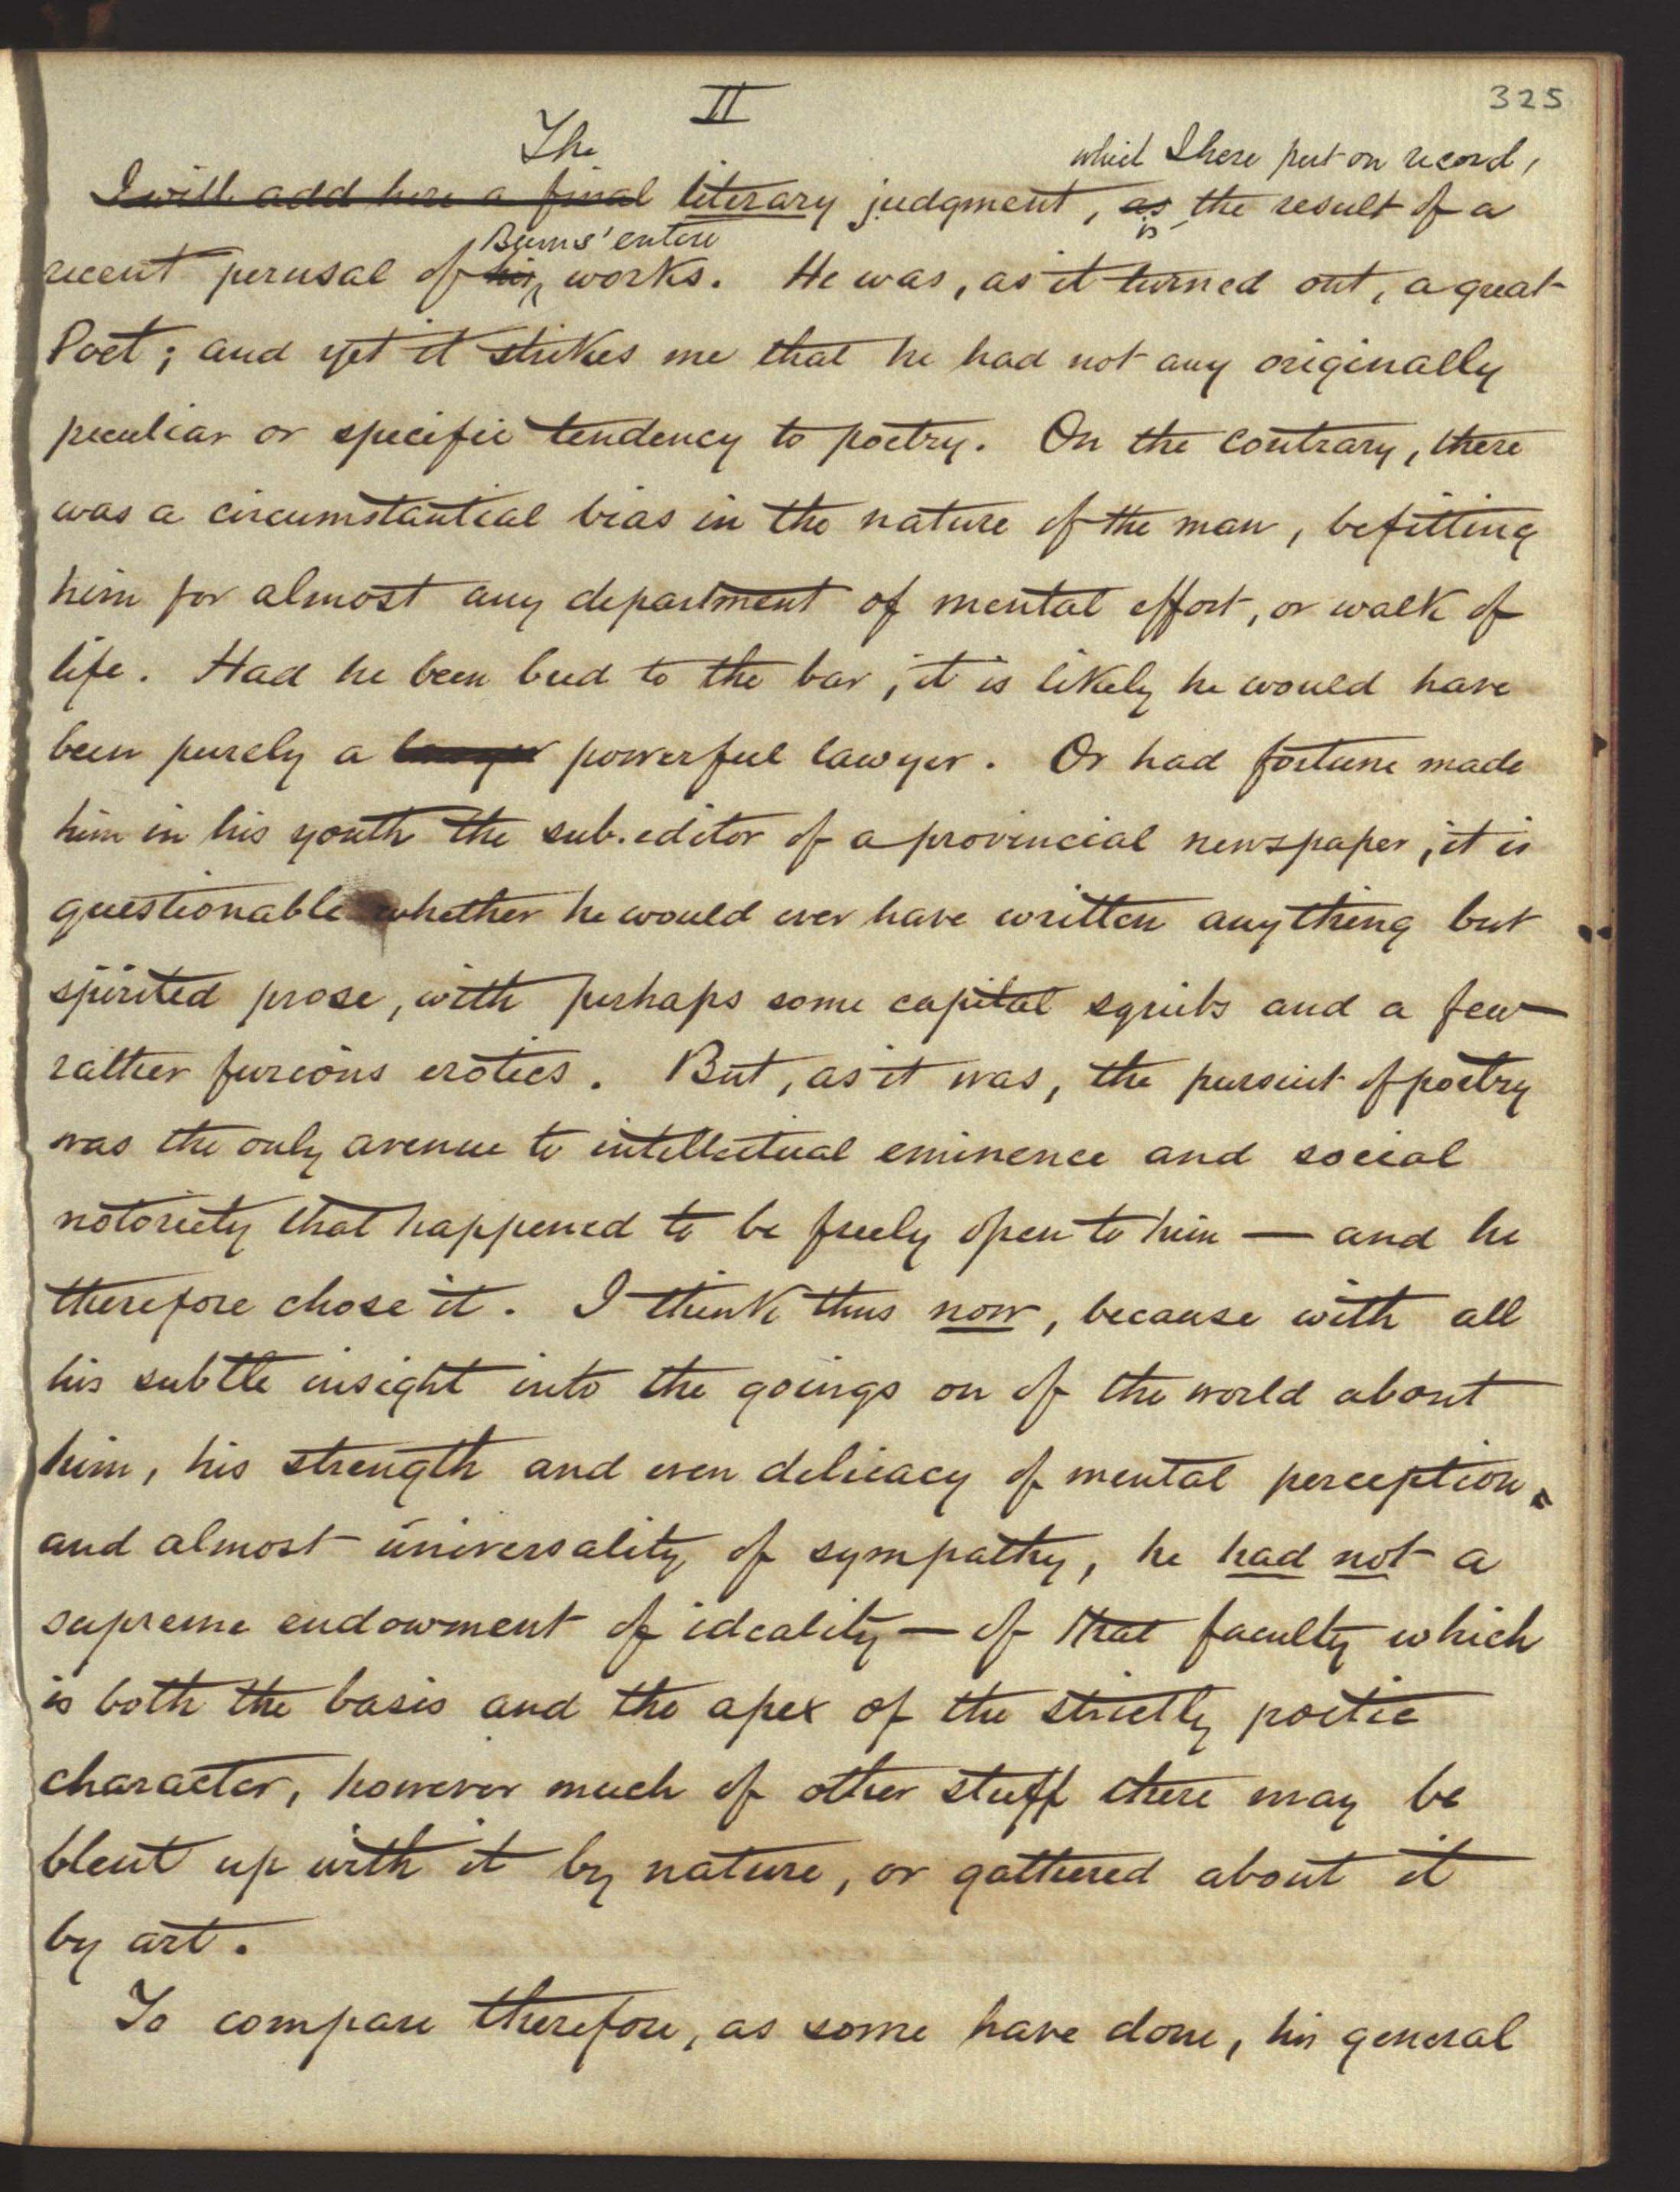 325
II
The which I here put on record,
I will add here a final literary judgment, as is the result of a
Burns' entire
recent perusal of his works. He was, as it turned out, a great
Poet; and yet it strikes me that he had not any originally
peculiar or specific tendency to poetry. On the contrary, there
was a circumstantial bias in the nature of the man, befitting
him for almost any department of mental effort, or walk of
life. Had he been bred to the bar, it is likely he would have
been purely a lawyer powerful lawyer. Or had fortune made
him in his youth the sub.editor of a provincial newspaper, it is
questionable whether he would ever have written anything but
spirited prose, with perhaps some capital squibs and a few
rather furious erotics. But, as it was, the pursuit of poetry
was the only avenue to intellectual eminence and social
notoriety that happened to be freely open to him — and he
therefore chose it. I think thus now, because with all
his subtle insight into the goings on of the world about
him, his strength and even delicacy of mental perception,
and almost universality of sympathy, he had not a
supreme endowment of ideality — of that faculty which
is both the basis and the apex of the strictly poetic
character, however much of other stuff there may be
blent up with it by nature, or gathered about it
by art.
To compare therefore, as some have done, his general